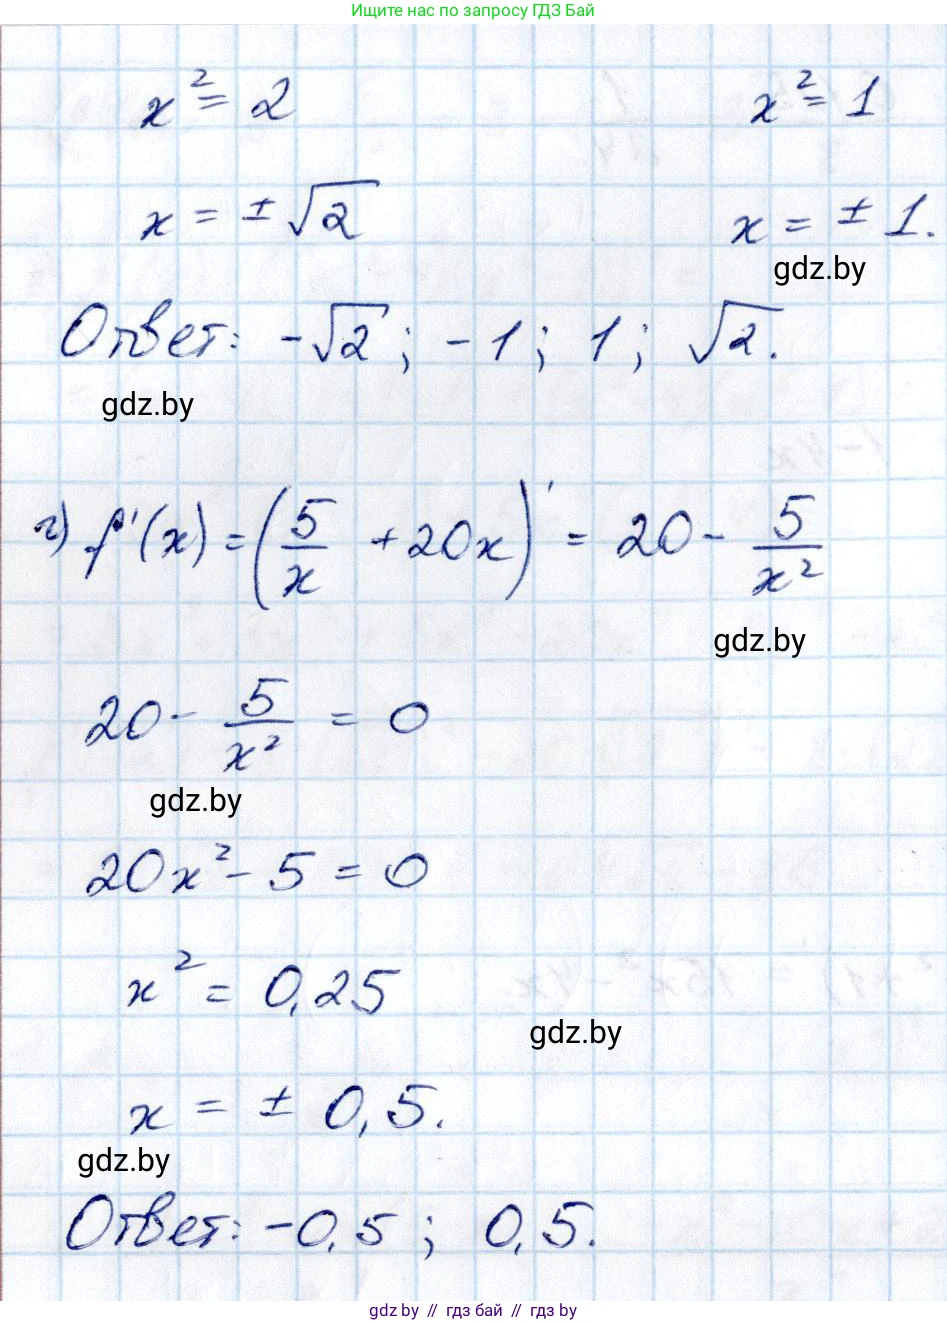 Ищите нас по запросу ГДЗ Бай
x² = 2 x² = 1
x = ± √2 x = ± 1.
gdz.by
Ответ: -√2; -1; 1; √2.
gdz.by
г) f'(x) = (5/x + 20x)' = 20 - 5/x²
gdz.by
20 - 5/x² = 0
gdz.by
20x² - 5 = 0
x² = 0,25
gdz.by
x = ± 0,5.
gdz.by
Ответ: -0,5; 0,5.
gdz.by // гдз бай // гдз by